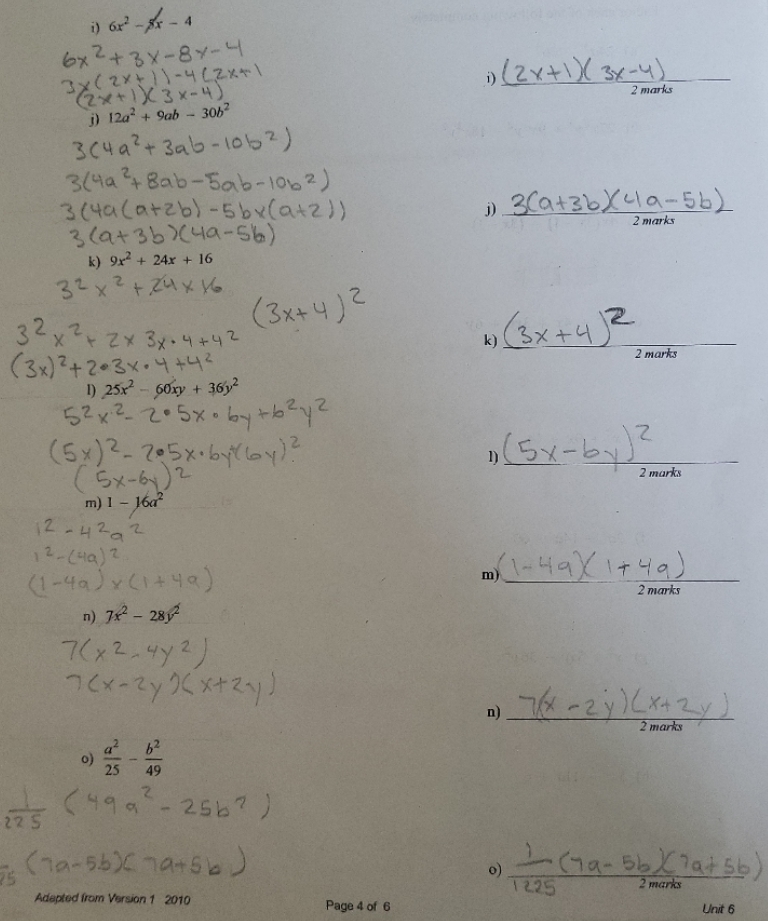 i) 6x² - 5x - 4
6x² + 3x - 8x - 4
3x(2x+1) - 4(2x+1
(2x+1)(3x-4)
i) (2x+1)(3x-4)
2 marks
j) 12a² + 9ab - 30b²
3(4a² + 3ab - 10b²)
3(4a² + 8ab - 5ab - 10b²)
3(4a(a+2b) - 5bx(a+2))
3(a+3b)(4a-5b)
j) 3(a+3b)(4a-5b)
2 marks
k) 9x² + 24x + 16
3²x² + 24x 16
(3x+4)²
3²x² + 2x 3x · 4 + 4²
(3x)² + 2·3x·4 + 4²
k) (3x+4)²
2 marks
l) 25x² - 60xy + 36y²
5²x² - 2·5x·6y + 6²y²
(5x)² - 2·5x·6y(6y)²
(5x-6y)²
l) (5x-6y)²
2 marks
m) 1 - 16a²
1² - 4²a²
1² - (4a)²
(1-4a) x (1+4a)
m) (1-4a)(1+4a)
2 marks
n) 7x² - 28y²
7(x² - 4y²)
7(x-2y)(x+2y)
n) 7(x-2y)(x+2y)
2 marks
o) a²/25 - b²/49
1/225 (49a² - 25b²)
25 (7a-5b)(7a+5b)
o) 1/1225 (7a-5b)(7a+5b)
2 marks
Adapted from Version 1 2010
Page 4 of 6
Unit 6